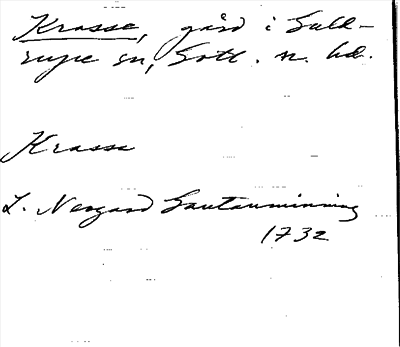 Krasse, gård i Hall-
rupe sn, Gotl. n. hd.
Krasse
L. Nergard Gautauminning
1732